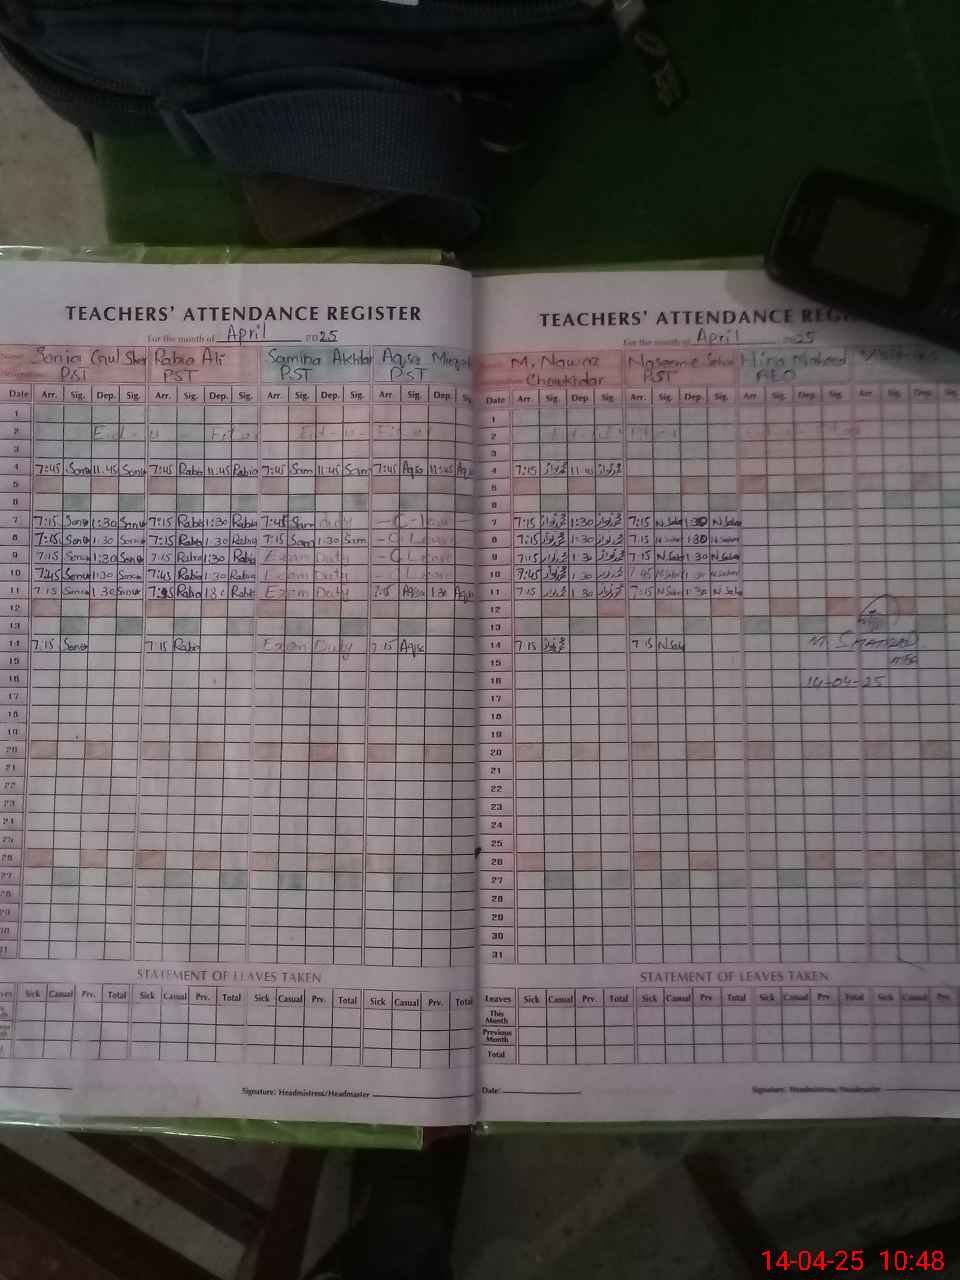 TEACHERS' ATTENDANCE REGISTER
For the month of April 2025
Sonia Gul Sher Rabia Ali Samina Akhtar Aqsa
PST PST PST PST
Date Arr. Sig. Dep. Sig. Arr. Sig. Dep. Sig. Arr. Sig. Dep. Sig. Arr. Sig. Dep.
1
2 Eid-u-Fitar Eid-u-Fitar
3
4 7:45 Sonia 11:45 Sonia 7:45 Rabia 11:45 Rabia 7:45 Sam 11:45 Sam 7:45 Aqsa 11:45 Aqsa
5
6
7 7:15 Sonia 1:30 Sonia 7:15 Rabia 1:30 Rabia 7:45 Sam Duty - C-Leave -
8 7:15 Sonia 1:30 Sonia 7:15 Rabia 1:30 Rabia 7:15 Sam 1:30 Sam - C-Leave -
9 7:15 Sonia 1:30 Sonia 7:15 Rabia 1:30 Rabia Exam Duty - C-Leave -
10 7:45 Sonia 1:30 Sonia 7:45 Rabia 1:30 Rabia Exam Duty Leave
11 7:15 Sonia 1:30 Sonia Rabia 1:30 Rabia Exam Duty 7:15 Aqsa 1:30 Aqsa
12
13
14 7:15 Sonia 7:15 Rabia Exam Duty 7:15 Aqsa
15
16
17
18
19
20
21
22
23
24
25
26
27
28
29
30
31
STATEMENT OF LEAVES TAKEN
Sick Casual Prv. Total Sick Casual Prv. Total Sick Casual Prv. Total Sick Casual Prv. Total
Signature: Headmistress/Headmaster
TEACHERS' ATTENDANCE
For the month of April 2025
M. Nawaz Naseeme Hina Naheed
Chowkidar PST AEO
Date Arr. Sig. Dep. Sig. Arr. Sig. Dep. Sig. Arr. Sig. Dep. Sig. Arr. Sig. Dep.
1
2
3
4 7:15 11:45
5
6
7 7:15 1:30 7:15 N.Saba 1:30 N.Saba
8 7:15 1:30 7:15 N.Saba 1:30 N.Saba
9 7:15 1:30 7:15 N.Saba 1:30 N.Saba
10 7:45 1:30 7:45 N.Saba 1:30 N.Saba
11 7:15 1:30 7:15 N.Saba 1:30 N.Saba
12
13
14 7:15 7:15 N.Saba
15
16 14-04-25
17
18
19
20
21
22
23
24
25
26
27
28
29
30
31
STATEMENT OF LEAVES TAKEN
Leaves Sick Casual Prv. Total Sick Casual Prv. Total Sick Casual Prv. Total Sick Casual Prv.
This Month
Previous Month
Total
Date: Signature: Headmistress/Headmaster
14-04-25 10:48